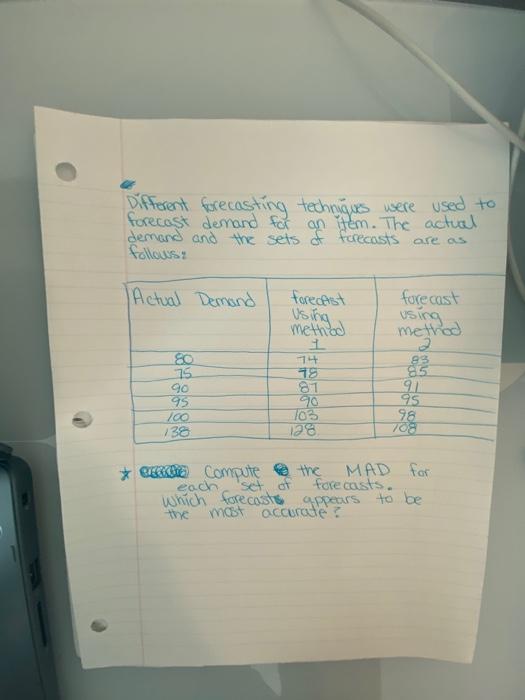 Different forecasting techniques were used to
forecast demand for an item. The actual
demand and the sets of forecasts are as
follows:
Actual Demand forecast using method 1 forecast using method 2
80 74 83
75 78 85
90 87 91
95 90 95
100 103 98
138 128 108
* Compute the MAD for
each set of forecasts.
Which forecasts appears to be
the most accurate?